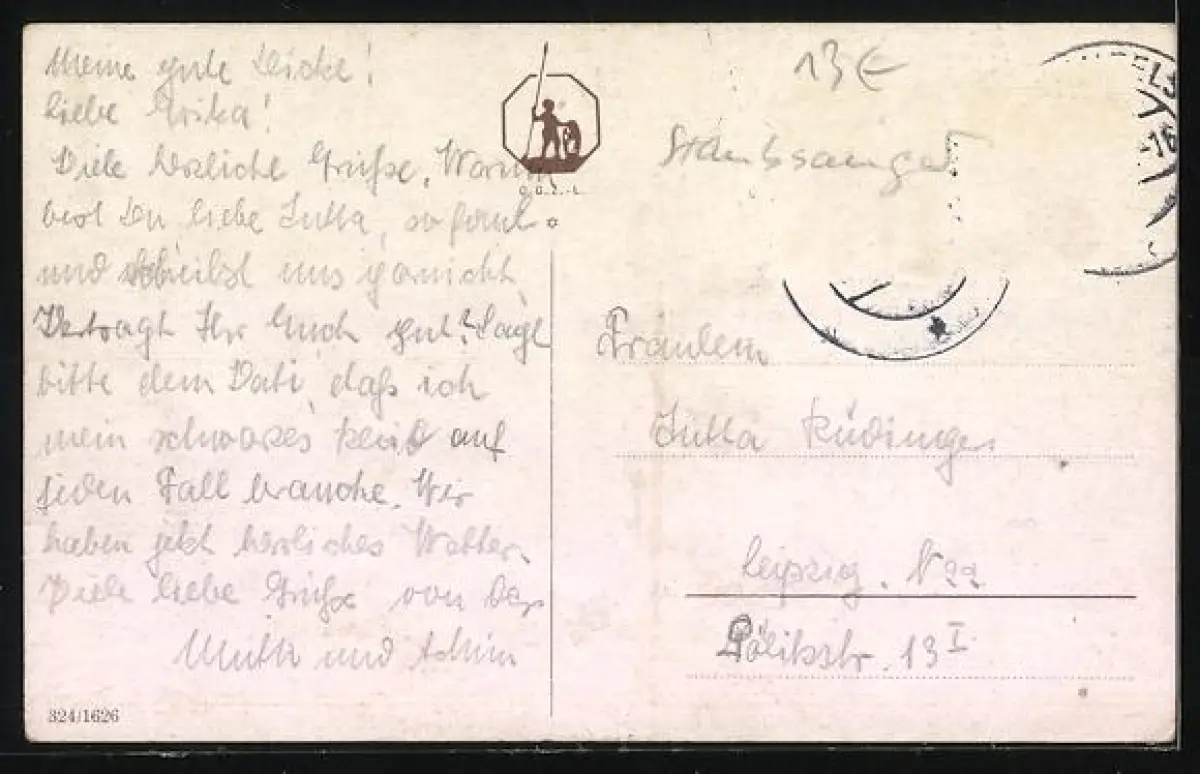 Meine gute Dicke!
Liebe Erika!
Viele herzliche Grüße. Warum
bist Du liebe Jutta, so faul
und schreibst uns garnicht.
Vertragt Ihr Euch gut? Sagt
bitte dem Vati, daß ich
mein schwarzes Kleid auf
jeden Fall brauche. Wir
haben jetzt herrliches Wetter.
Viele liebe Grüße von
Mutti und Achim
324/1626
13€
Staubsauger
Fräulein
Jutta Rüdinger
Leipzig. N22
Pölitzstr. 13 I